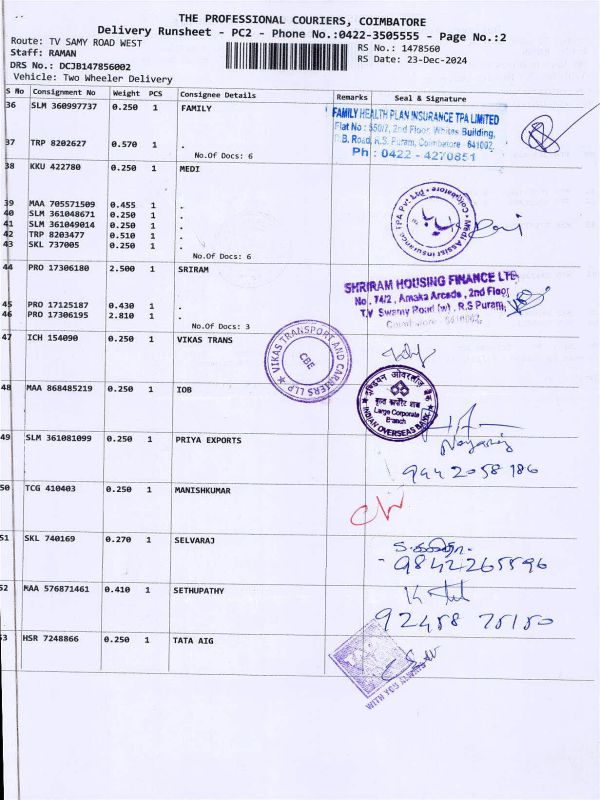 THE PROFESSIONAL COURIERS, COIMBATORE
Delivery Runsheet - PC2 - Phone No.:0422-3505555 - Page No.:2
Route: TV SAMY ROAD WEST
Staff: RAMAN
DRS No.: DCJB147856002
Vehicle: Two Wheeler Delivery
RS No.: 1478560
RS Date: 23-Dec-2024
S No Consignment No Weight PCS Consignee Details Remarks Seal & Signature
36 SLM 360997737 0.250 1 FAMILY
FAMILY HEALTH PLAN INSURANCE TPA LIMITED
Flat No : 550/7, 2nd Floor, Whites Building,
D.B. Road, R.S. Puram, Coimbatore - 641002.
Ph : 0422 - 4270851
37 TRP 8202627 0.570 1 .
No.Of Docs: 6
38 KKU 422780 0.250 1 MEDI
Medi Assist Insurance TPA Pvt Ltd
Coimbatore
39 MAA 705571509 0.455 1 .
40 SLM 361048671 0.250 1 .
41 SLM 361049014 0.250 1 .
42 TRP 8203477 0.510 1 .
43 SKL 737005 0.250 1 .
No.Of Docs: 6
44 PRO 17306180 2.500 1 SRIRAM
SHRIRAM HOUSING FINANCE LTD
No. 74/2, Amaka Arcade, 2nd Floor
T.V Swamy Road (w), R.S Puram,
Coimbatore - 641002.
45 PRO 17125187 0.430 1 .
46 PRO 17306195 2.810 1 .
No.Of Docs: 3
47 ICH 154090 0.250 1 VIKAS TRANS
VIKAS TRANSPORT AND CARRIERS LLP
CBE
48 MAA 868485219 0.250 1 IOB
इण्डियन ओवरसीज़ बैंक
Large Corporate
Branch
INDIAN OVERSEAS BANK
49 SLM 361081099 0.250 1 PRIYA EXPORTS
9442058186
50 TCG 410403 0.250 1 MANISHKUMAR
51 SKL 740169 0.270 1 SELVARAJ
9842265596
52 MAA 576871461 0.410 1 SETHUPATHY
92458 75150
53 HSR 7248866 0.250 1 TATA AIG
WITH YOU ALWAYS